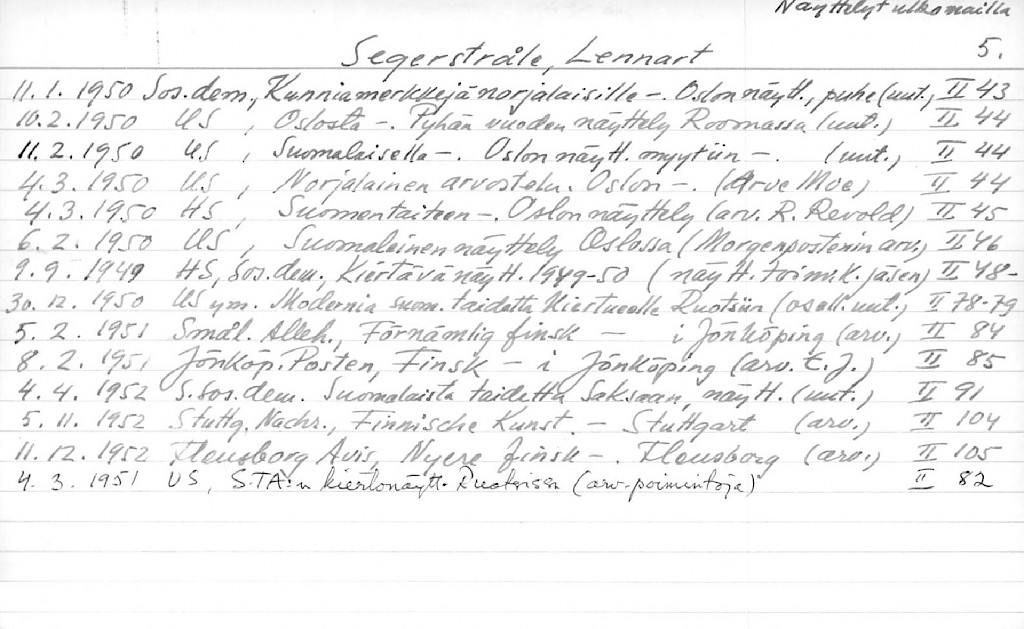 Näyttelyt ulkomailla
5.
Segerstråle, Lennart
11.1.1950 Sos.dem., Kunniamerkkejä norjalaisille -. Oslon näytt., puhe (uut., II 43
10.2.1950 US, Oslosta -. Pyhän vuoden näyttely Roomassa (uut.) II 44
11.2.1950 US, Suomalaisella -. Oslon näytt. myytiin -. (uut.) II 44
4.3.1950 US, Norjalainen arvostelu. Oslon -. (Arve Moe) II 44
4.3.1950 HS, Suomen taiteen -. Oslon näyttely (arv. R. Revold) II 45
6.2.1950 US, Suomalainen näyttely Oslossa (Morgenpostenin arv.) II 46
9.9.1949 HS, Sos.dem., Kiertävä näytt. 1949-50 (näytt. toimik. jäsen) II 48-
30.12.1950 US ym. Modernia suom. taidetta kiertueelle Ruotsiin (osall. uut.) II 78-79
5.2.1951 Smål. Alleh., Förnämlig finsk - i Jönköping (arv.) II 84
8.2.1951 Jönköp. Posten, Finsk - i Jönköping (arv. E.J.) II 85
4.4.1952 S.Sos.dem. Suomalaista taidetta Saksaan, näytt. (uut.) II 91
5.11.1952 Stuttg. Nachr., Finnische Kunst. - Stuttgart (arv.) II 104
11.12.1952 Flensborg Avis, Nyere finsk -. Flensborg (arv.) II 105
4.3.1951 US, STA:n kiertonäytt. Ruotsissa (arv. poimintoja) II 82